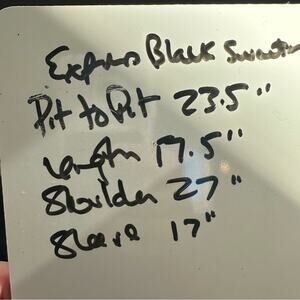 Express Black Sweater
Pit to Pit 23.5"
Length 17.5"
Shoulder 27"
Sleeve 17"